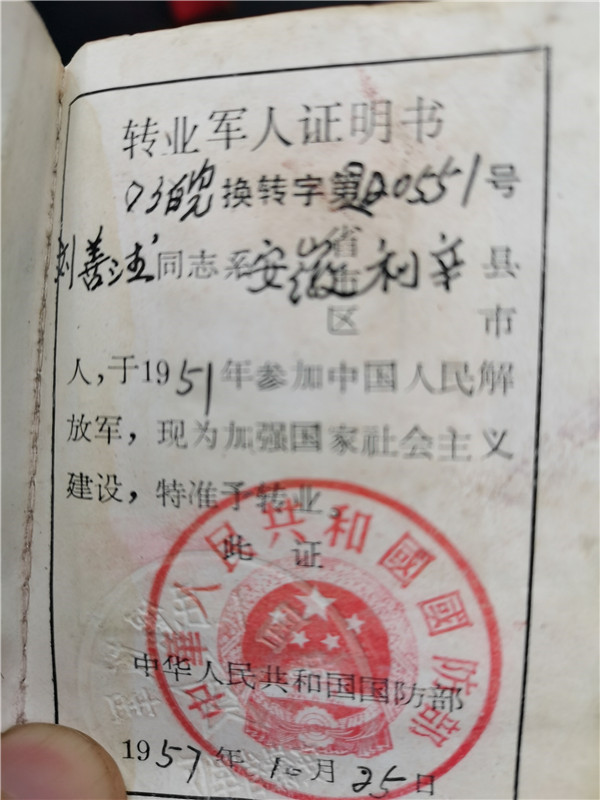 转业军人证明书
皖换转字第20551号
刘善法同志系安徽省利辛县
市 市
区
人,于1951年参加中国人民解
放军,现为加强国家社会主义
建设,特准予转业。
此证
中华人民共和国国防部
中华人民共和国国防部
1957年10月25日